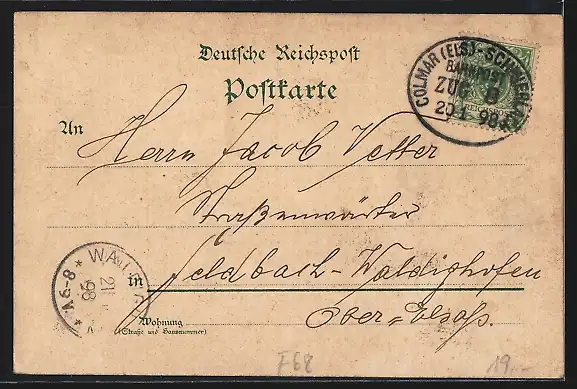 Deutsche Reichspost
Postkarte
COLMAR (ELS)-SCHNIERL
BAHNPOST
ZUG
20 1 98
An
Herrn Jacob Vetter
Straßenwärter
in Feldbach-Waldighofen
Ober-Elsaß.
Wohnung
(Straße und Hausnummer)
WAL
21
98
6-8
F68
19,-